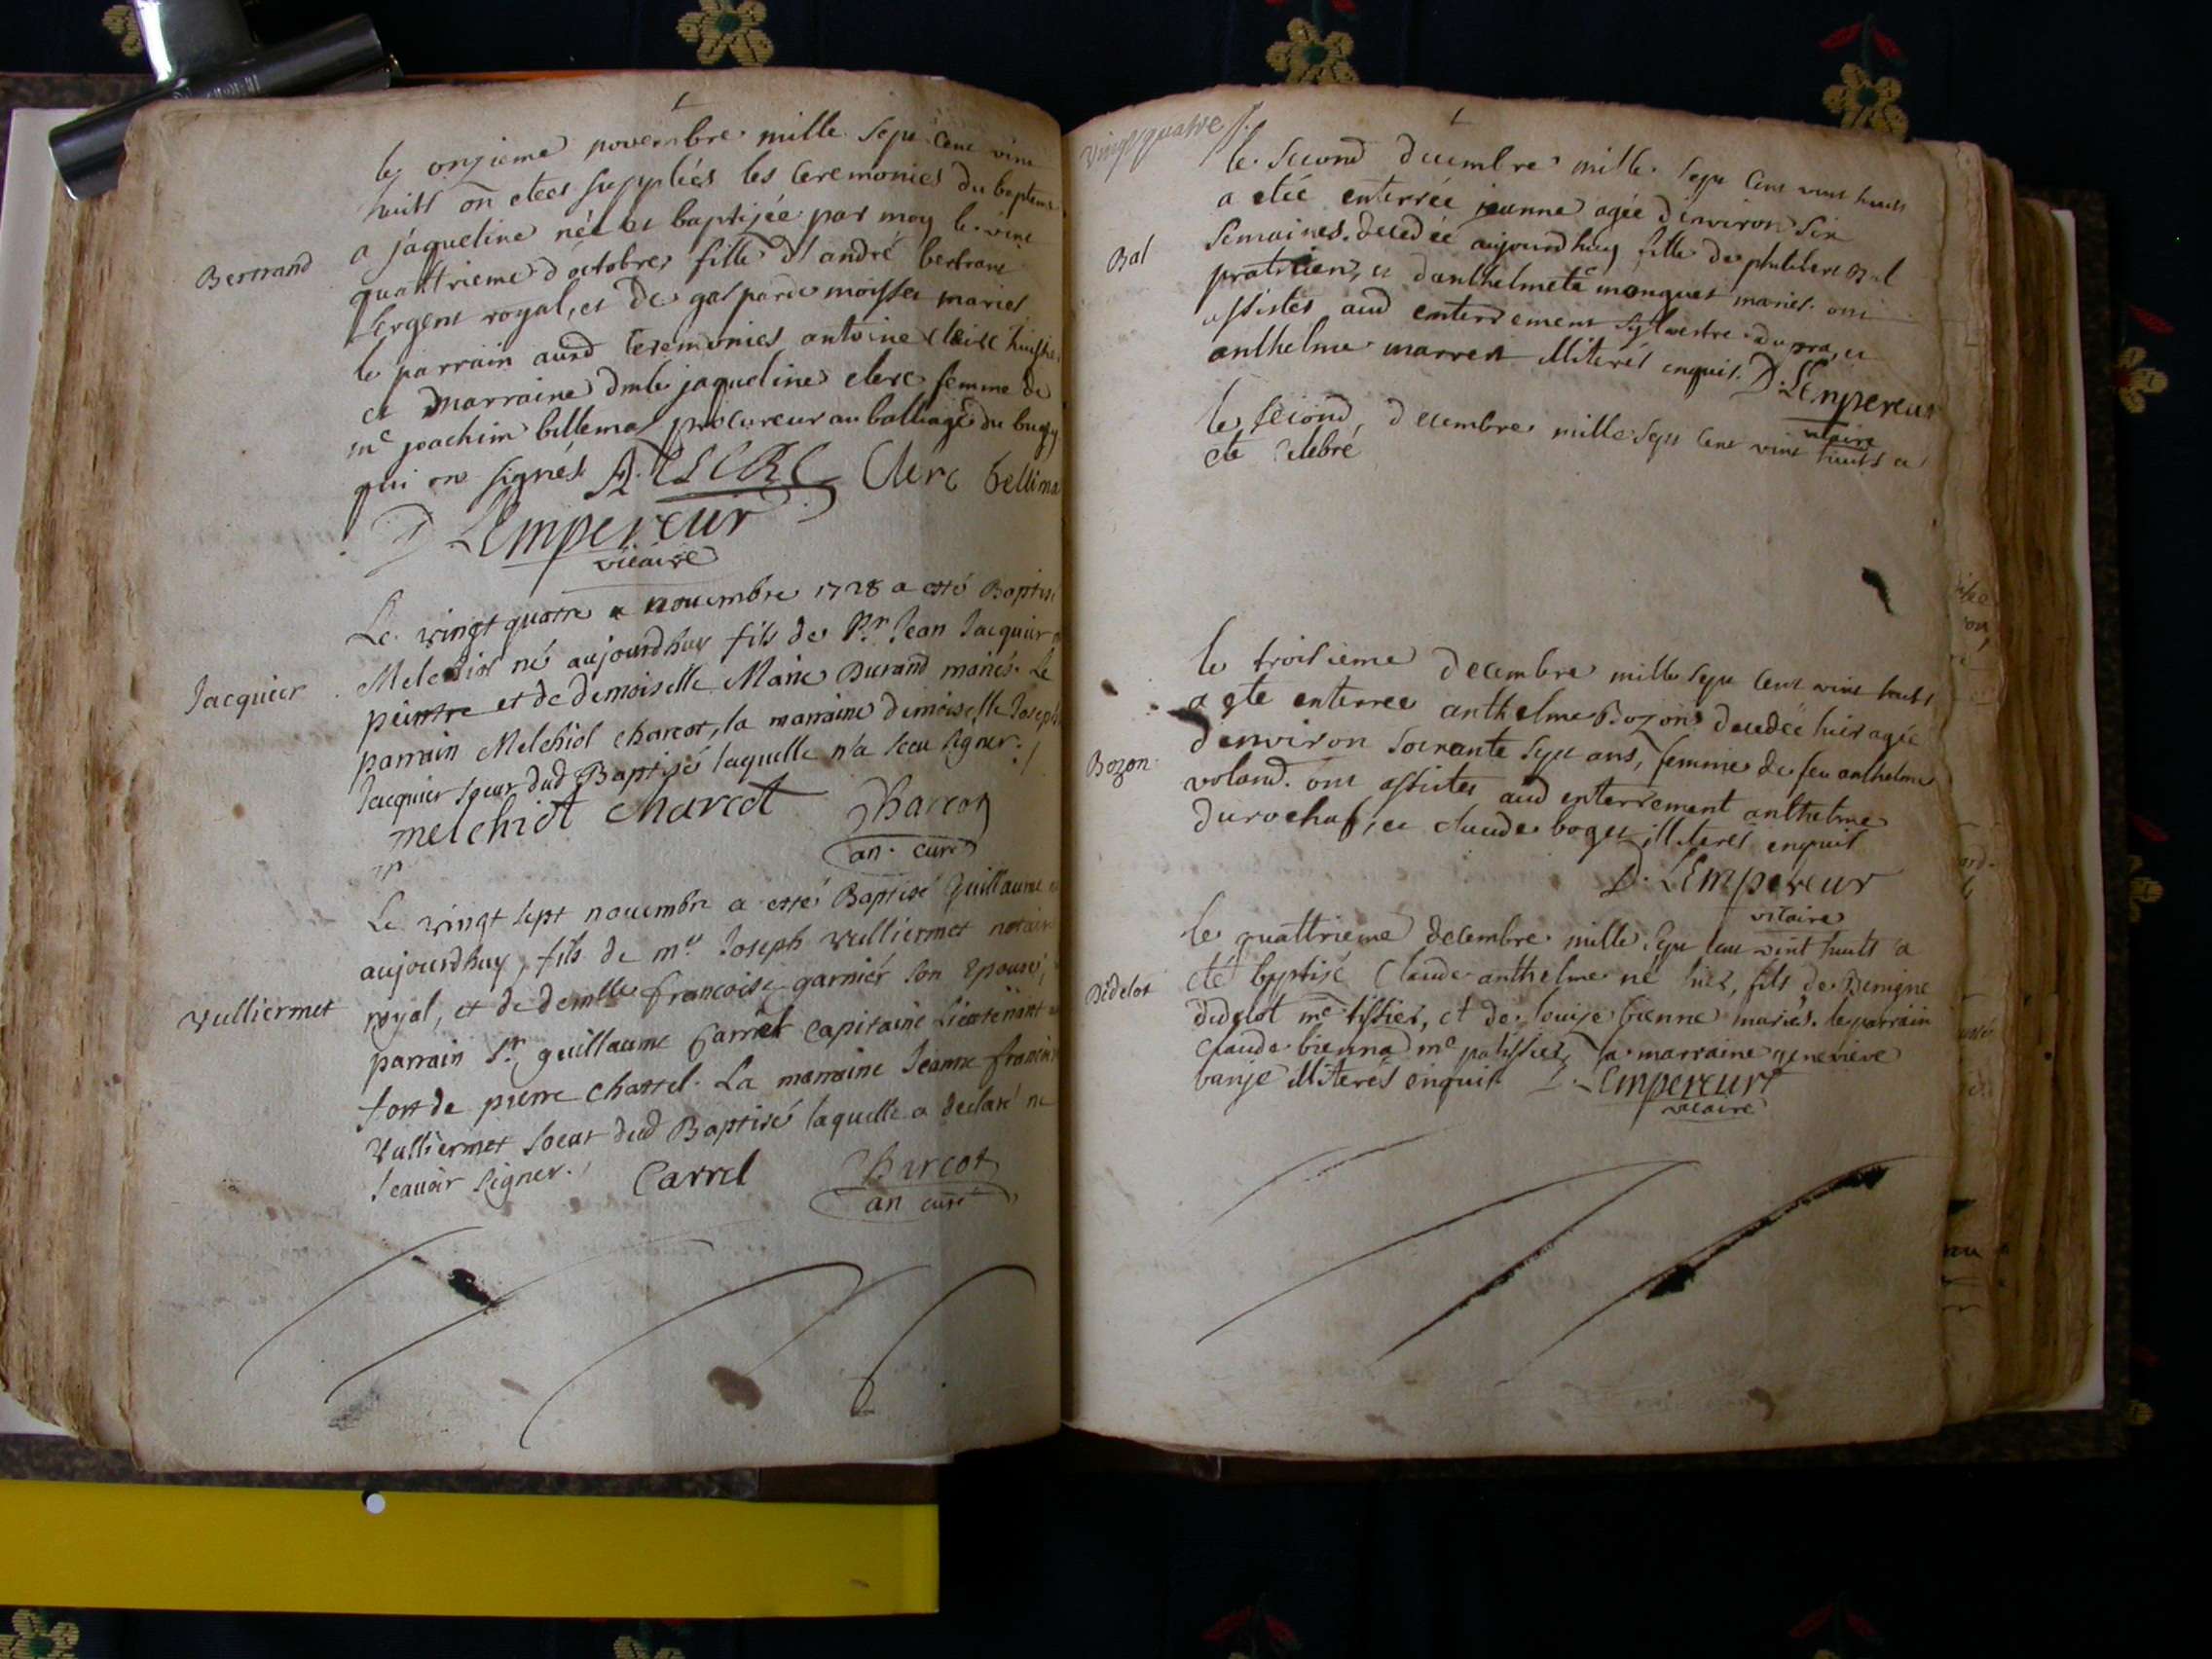 le onzieme novembre mille sept cent vint
huit on etees suppliées les ceremonies du bapteme
Bertrand
a jaqueline née et baptisée par moy le vint
quattrieme d'octobre, fille d'andré bertrand
sergent royal, et de gasparde moisset mariés
le parrain ausd ceremonies antoine clerc huissier
et marraine dmlle jaqueline clerc femme de
me joachim billemaz procureur au balliage du bugey
qui on signés A. CLERC Clerc billema
D. LEmpereur
vicaire
Le vingt quatre novembre 1728 a esté Baptisé
Melchiol né aujourdhuy fils de Sr. Jean Jacquier
Jacquier
peintre et de demoiselle Marie Durand mariés. Le
parrain Melchiol charcot, la marraine demoiselle Joseph
Jacquier soeur dud Baptisé laquelle n'a sceu signer.
melchiol charcot Charcot
an. curé
Le vingt sept novembre a esté Baptisé Guillaume
aujourdhuy, fils de me. Joseph Vulliermet notaire
Vulliermet
royal, et de demlle francoise garnier son Epouse,
parrain Sr. guillaume Carrel capitaine Lieutenant
fort de pierre chastel. La marraine Jeanne francoise
Vulliermet soeur dud Baptisé laquelle a declaré ne
scauoir signer. Carrel Charcot
an curé
vingt quatre
le second decembre mille sept cent vint huits
a etée enterrée jeanne agée d'environ six
Bal
semaines. decedée aujourdhuy fille de philibert Bal
praticien, et d'anthelmete monguet mariés. ont
assistés aud enterrement sylvestre dupra, et
anthelme marret illiterés enquis. D. LEmpereur
vicaire
le second, decembre mille sept cent vint huits a
eté celebré
le troisieme decembre mille sept cent vint huits
a ete enterree anthelme Bozon decedée hier agée
d'environ soixante sept ans, femme de feu anthelme
Bozon
voland. ont assistes aud enterrement anthelme
durochat, et claude boget illiterés enquis
D. LEmpereur
vicaire
le quattrieme decembre mille sept cent vint huits a
Didelot
eté baptisé Claude anthelme né hier, fils de Benigne
didelot me tissier, et de louise bienne mariés. le parrain
claude bienna me patissier, la marraine genevieve
banje illiterés enquis D. LEmpereur
vicaire